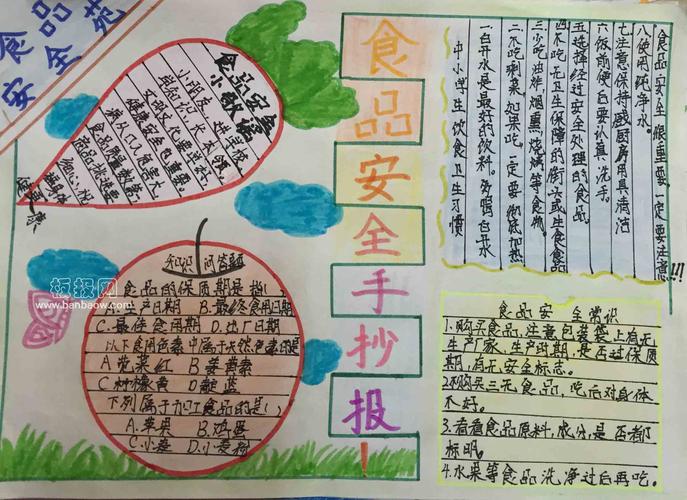 食品
安全苑
食品安全
小歌谣
食品安全手抄报!
知识问答题
食品的保质期是指(
生产日期 B.最终食用日期
C.最佳食用期 D.出厂日期
以下食用色素中属于天然色素的是
A 苋菜红 B 姜黄素
C 柠檬黄 D 靛蓝
下列属于加工食品的是(
A.苹果 B.鸡蛋
C.小麦 D.小麦粉
板报网
www.banbaow.com
食品安全很重要,一定要注意!!!
八使用纯净水。
七注意保持感厨房用具清洁
六饭前便后要认真洗手。
五选择经过安全处理的食品
四不吃无卫生保障的街头或生食食品
三少吃油炸、烟熏、烧烤等食物。
二不吃剩菜,如果吃,一定要彻底加热
一白开水是最好的饮料。多喝白开水
中小学生饮食卫生习惯
食品安全常识
1.购买食品,注意包装袋上有无
生产厂家、生产时期,是否过保质
期,有无安全标志。
2不购买三无食品,吃后对身体
不好。
3.看看食品原料,成分,是否都
标明。
4.水果等食品洗净过后再吃。